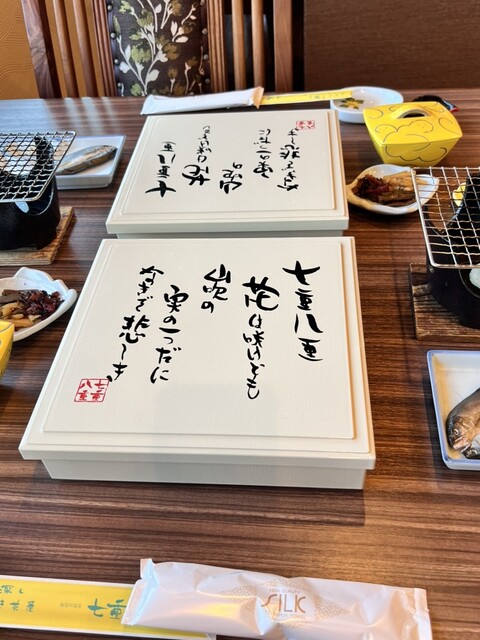 七重八重
花は咲けども
山吹の
実の一つだに
なきぞ悲しき
七重
八重
七重八重
花は咲けども
山吹の
実の一つだに
なきぞ悲しき
七重
SILK